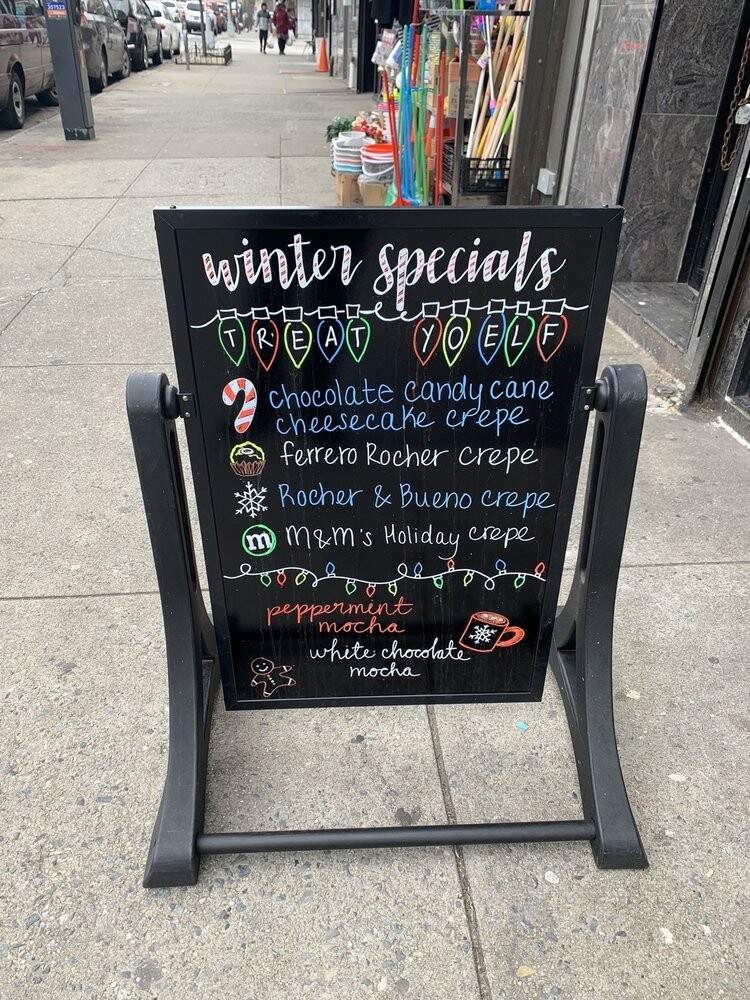 winter specials
TREAT YO ELF
chocolate candy cane
cheesecake crepe
ferrero Rocher crepe
Rocher & Bueno crepe
m
M&M's Holiday crepe
peppermint
mocha
white chocolate
mocha